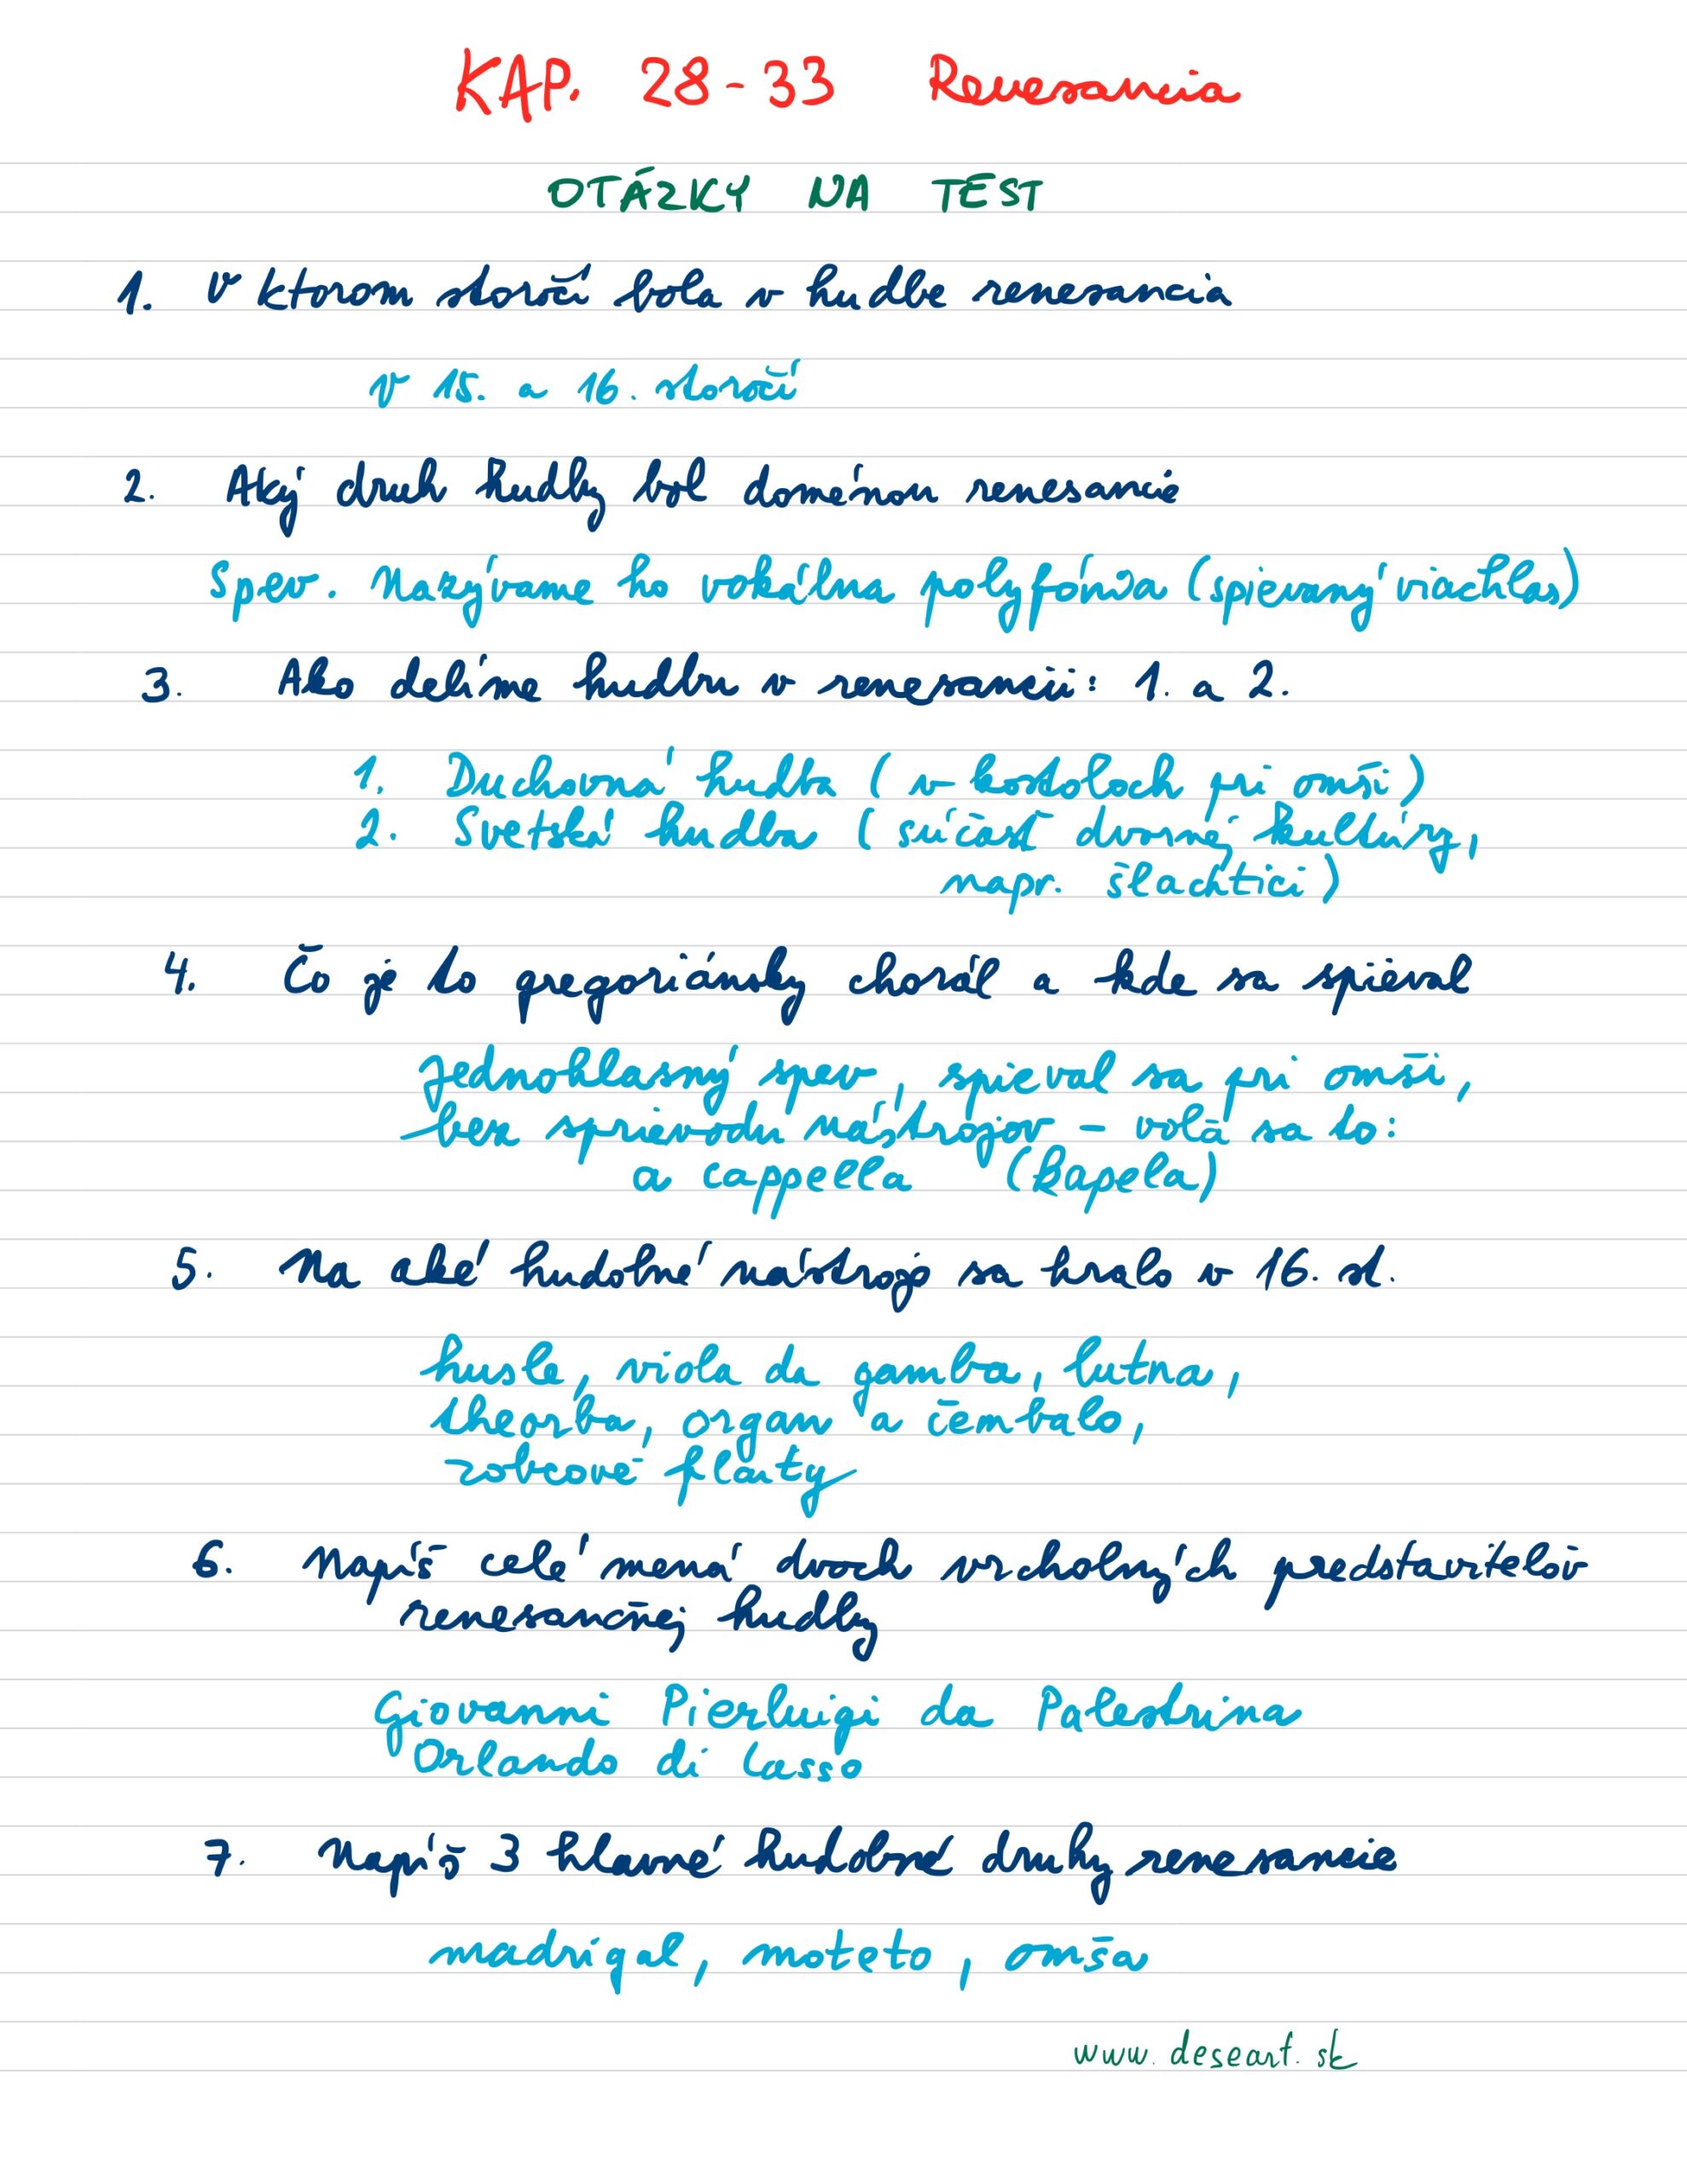 KAP. 28-33 Renesancia
OTÁZKY NA TEST
1. V ktorom storočí bola v hudbe renesancia
V 15. a 16. storočí
2. Aký druh hudby bol doménou renesancie
Spev. Nazývame ho vokálna polyfónia (spievaný viachlas)
3. Ako delíme hudbu v renesancii: 1. a 2.
1. Duchovná hudba (v kostoloch pri omši)
2. Svetská hudba (súčasť dvornej kultúry,
napr. šlachtici)
4. Čo je to gregoriánsky chorál a kde sa spieval
Jednohlasný spev, spieval sa pri omši,
bez sprievodu nástrojov - volá sa to:
a cappella (kapela)
5. Na aké hudobné nástroje sa hralo v 16. st.
husle, viola da gamba, lutna,
theorba, organ a čembalo,
zobcové flauty
6. Napíš celé mená dvoch vrcholných predstaviteľov
renesančnej hudby
Giovanni Pierluigi da Palestrina
Orlando di Lasso
7. Napíš 3 hlavné hudobné druhy renesancie
madrigal, moteto, omša
www.deseart.sk